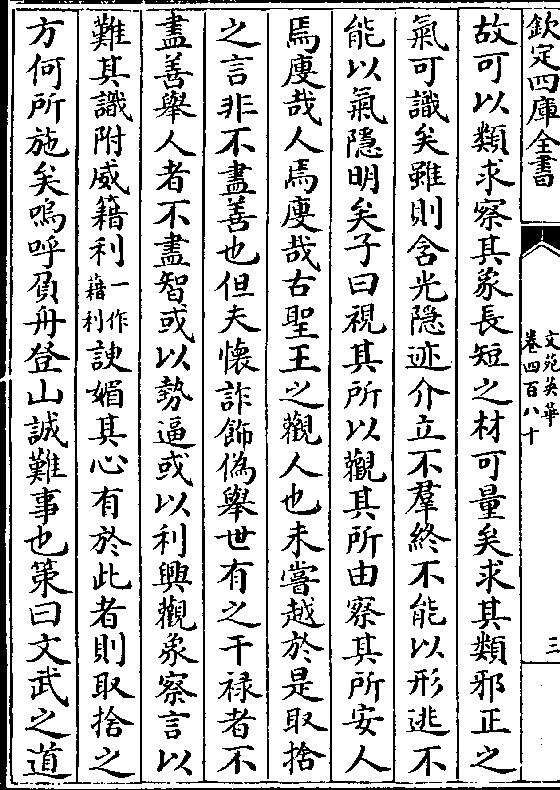 欽定四庫全書
文苑英華
卷四百八十
三
故可以類求察其象長短之材可量矣求其類邪正之
氣可識矣雖則含光隱迹介立不羣終不能以形逃不
能以氣隱明矣子曰視其所以觀其所由察其所安人
焉廋哉人焉廋哉古聖王之觀人也未嘗越於是取捨
之言非不盡善也但夫懷詐飾偽舉世有之干禄者不
盡善舉人者不盡智或以勢逼或以利興觀象察言以
難其識附威藉利一作藉利諛媚其心有於此者則取捨之
方何所施矣嗚呼負舟登山誠難事也策曰文武之道